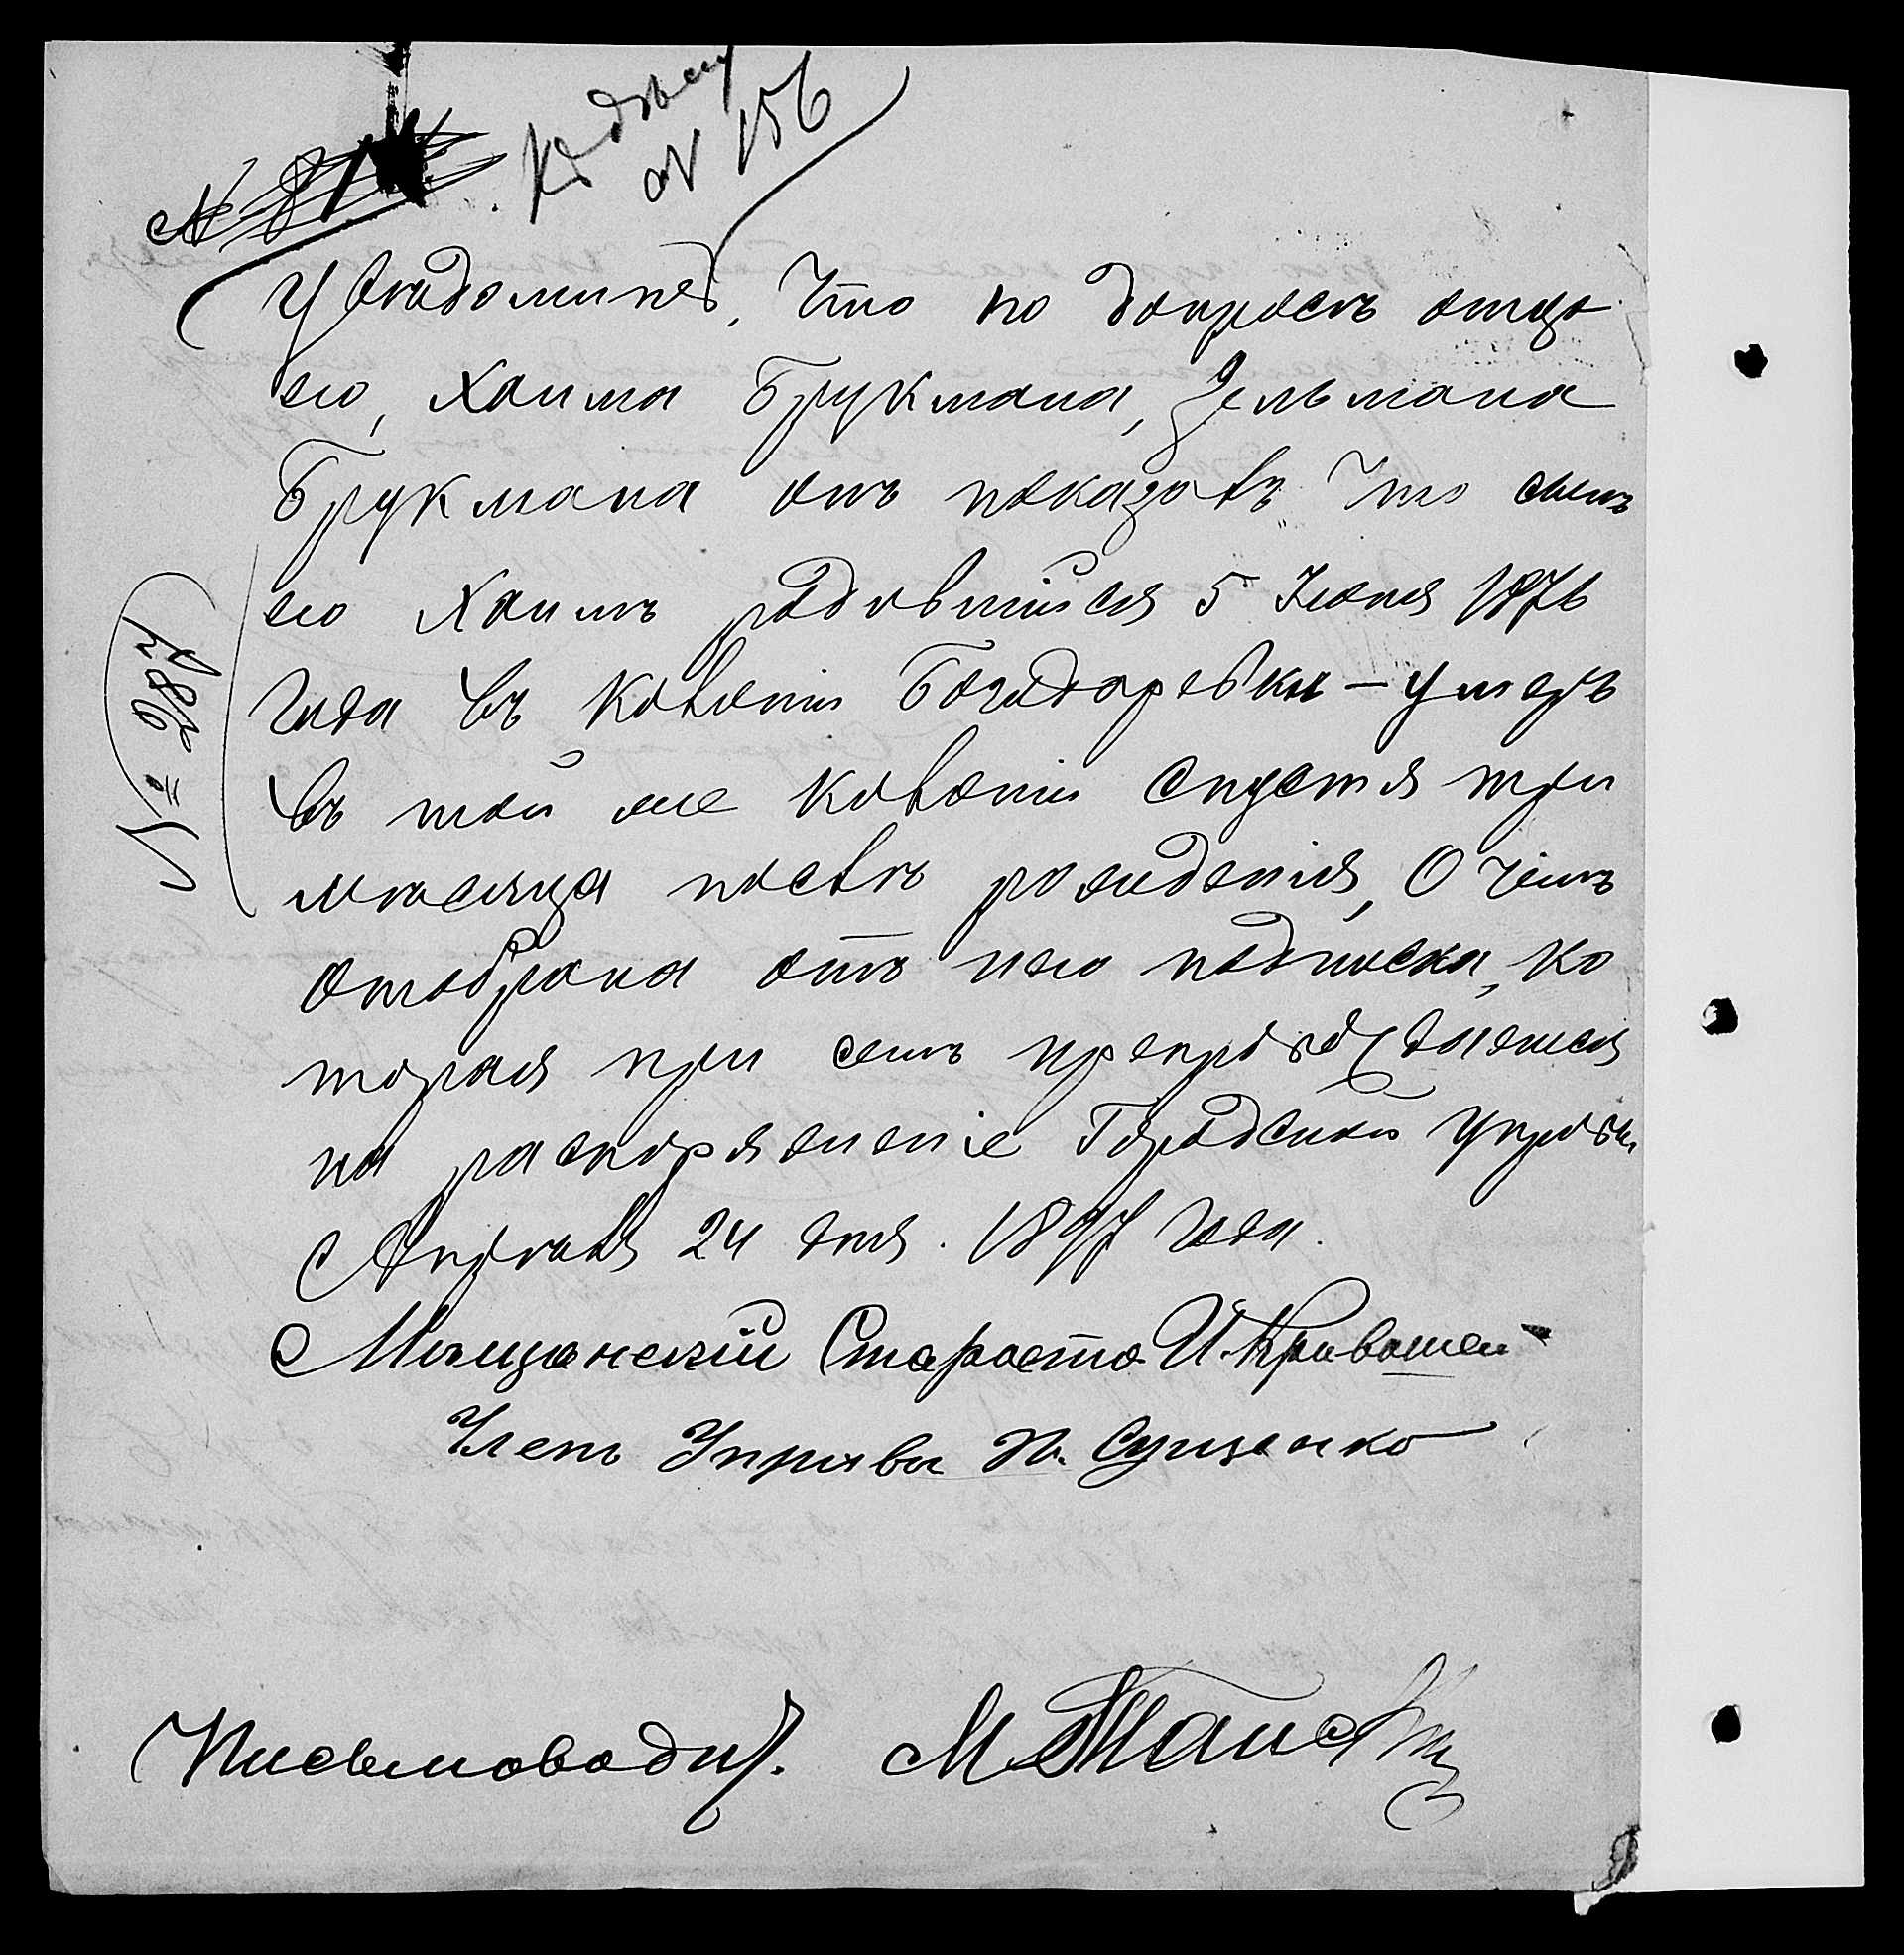 Къ дѣлу
№ 156
№ 81
Увѣдомить, что по допросѣ отца
его, Хаима Брукмана, Зельмана
Брукмана онъ показалъ что сынъ
его Хаимъ родившійся 5 Іюня 1876
года въ колоніи Богодаровки – умеръ
въ той же колоніи спустя три
мѣсяца послѣ рожденія, О чемъ
отобрана отъ него подписка, ко
торая при семъ препровождается
на распоряженіе Городской Управы
Апрѣля 24 дня. 1897 года.
Мѣщанскій Староста И. Кривошей
Членъ Управы П. Сущенко
Письмоводи. М.